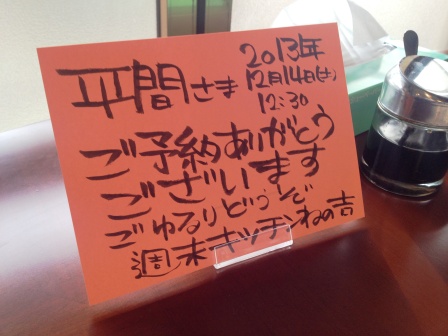 平間さま
2013年
12月14日(土)
12:30
ご予約ありがとう
ございます
ごゆるりどうぞ
週末キッチンねの吉